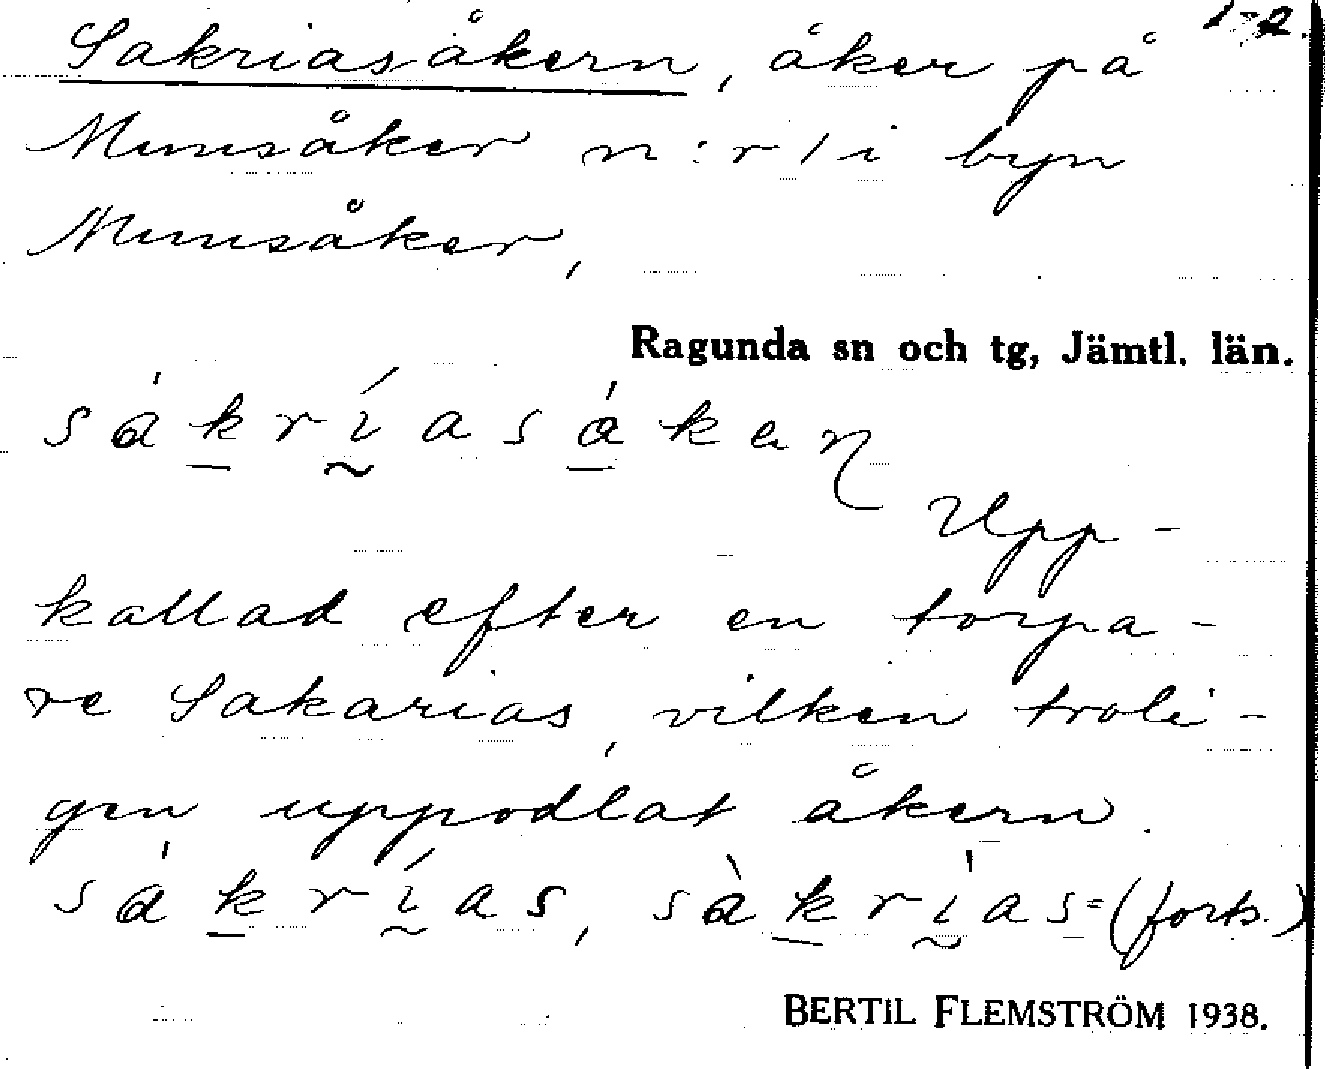 1-2.
Sakriasåkern, åker på
Munsåker n:r 1 i byn
Munsåker,
Ragunda sn och tg, Jämtl. län.
Upp-
kallad efter en torpa-
re Sakarias, vilken troli-
gen uppodlat åkern.
(forts.)
BERTIL FLEMSTRÖM 1938.